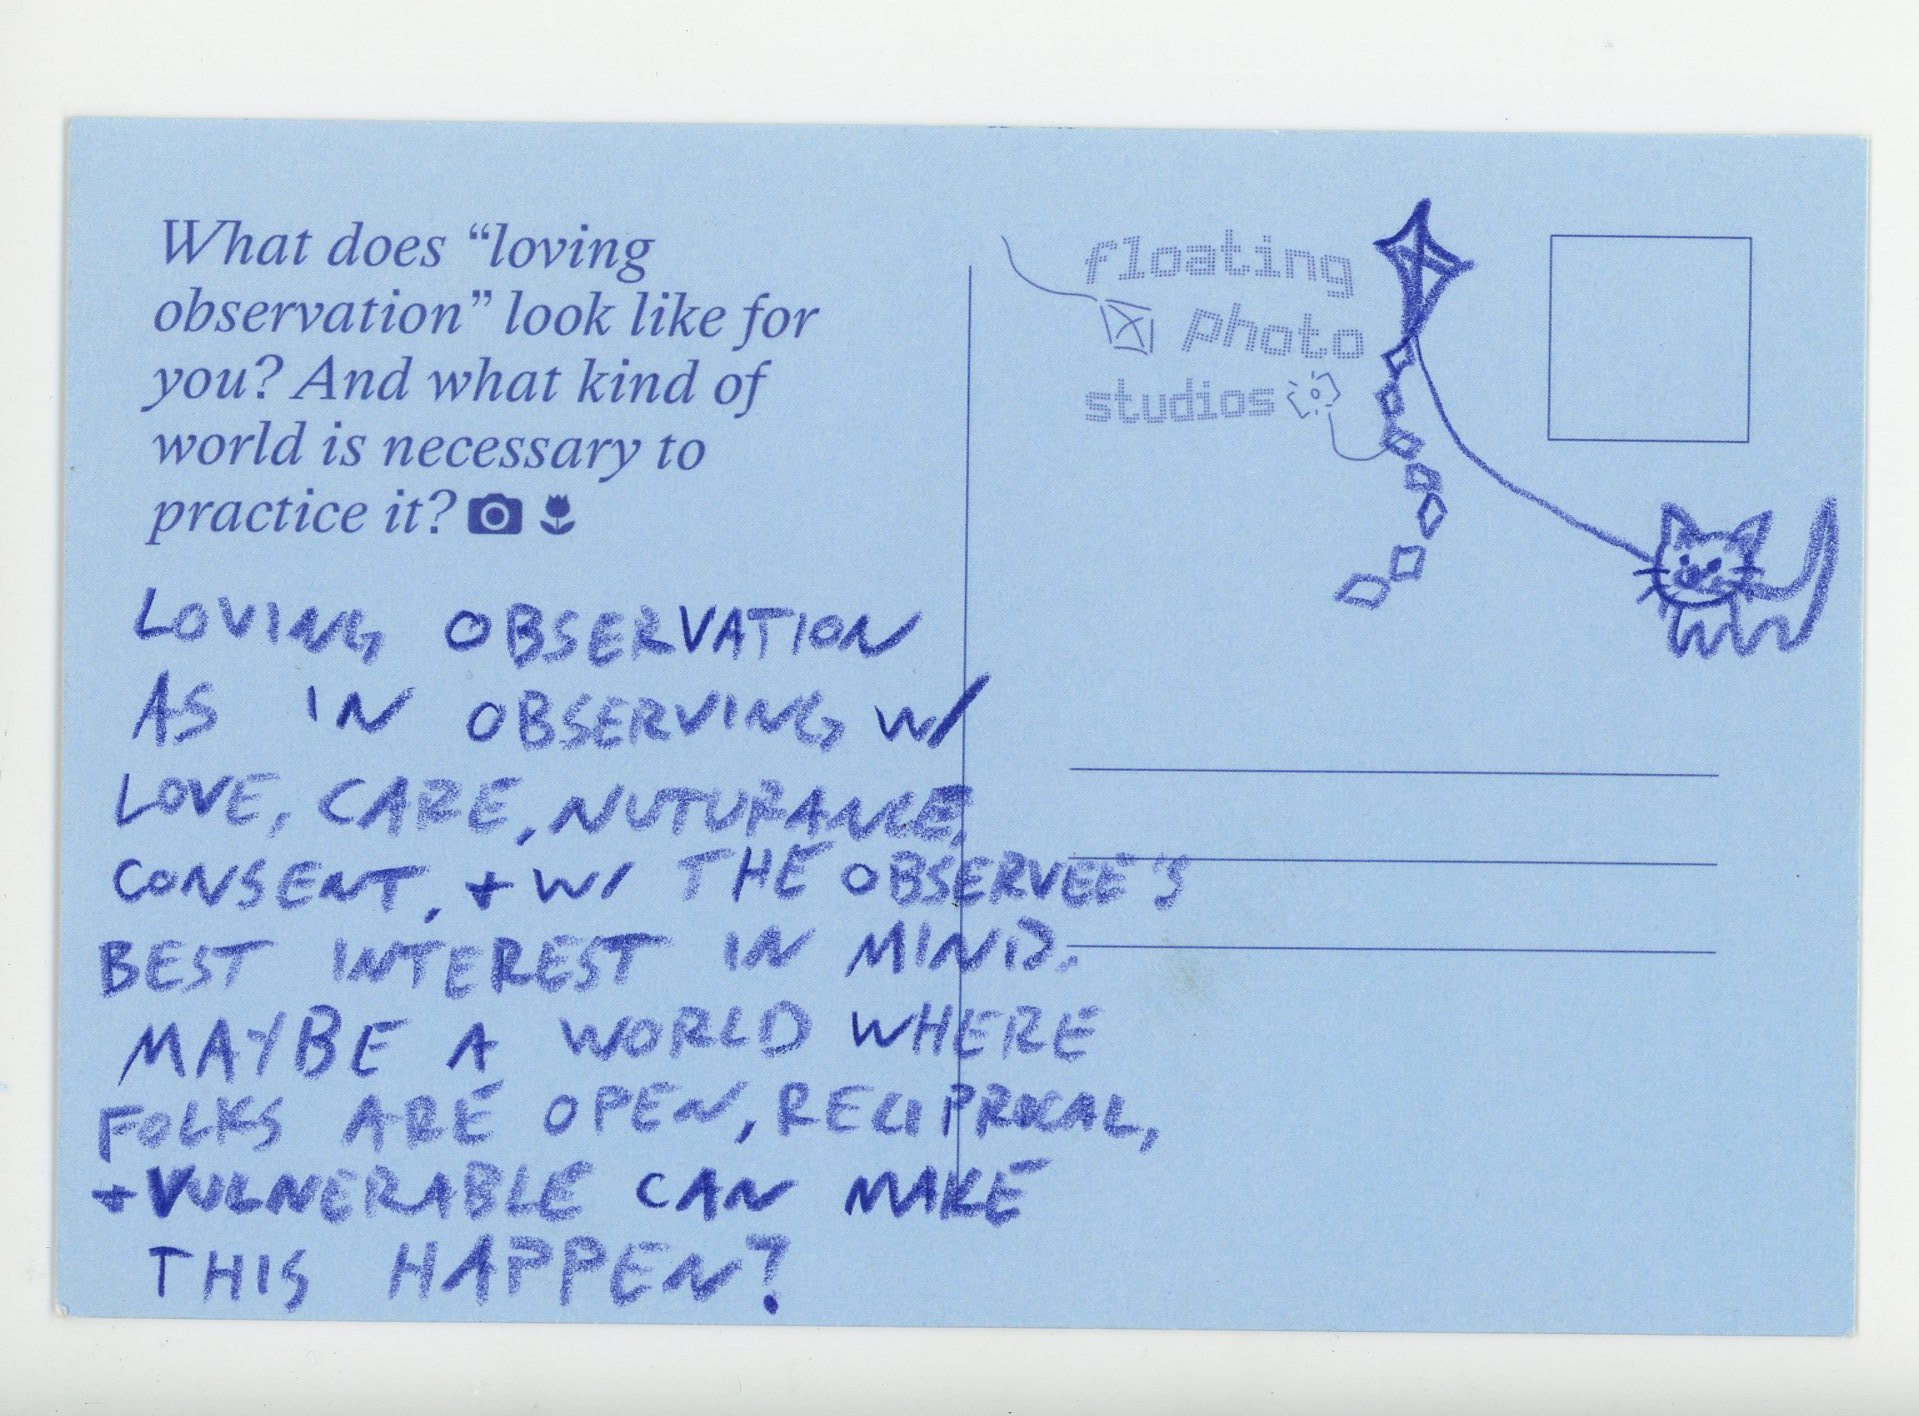 What does “loving
observation” look like for
you? And what kind of
world is necessary to
practice it?
floating
photo
studios
LOVING OBSERVATION
AS IN OBSERVING W/
LOVE, CARE, NUTURANCE,
CONSENT, + W/ THE OBSERVEE'S
BEST INTEREST IN MIND.
MAYBE A WORLD WHERE
FOLKS ARE OPEN, RECIPROCAL,
+ VULNERABLE CAN MAKE
THIS HAPPEN?